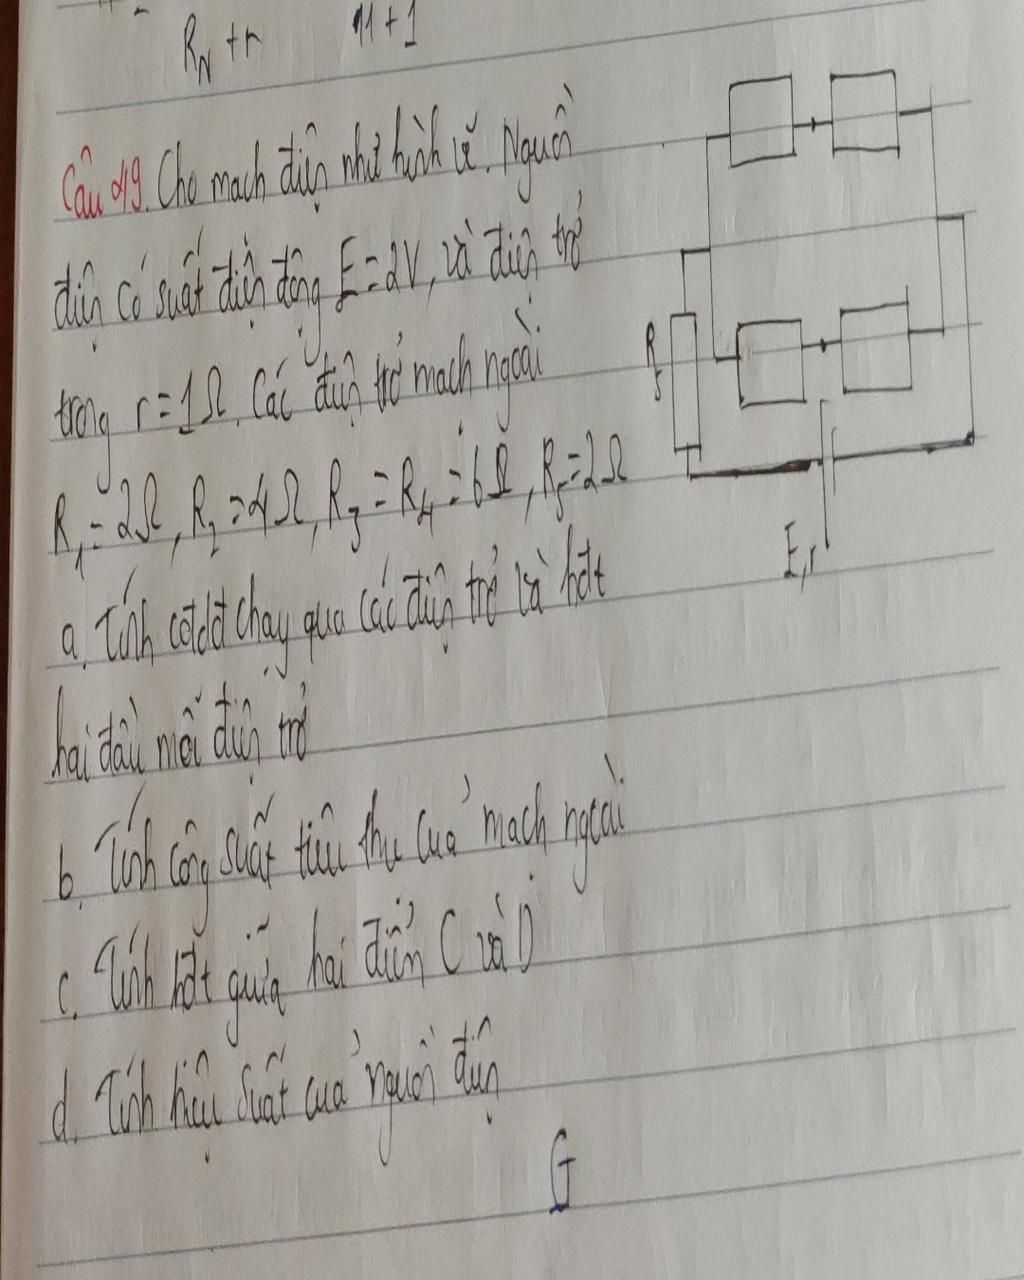 R_N + r 11 + 1
Câu 49. Cho mạch điện như hình vẽ. Nguồn
điện có suất điện động E = 2V, và điện trở
trong r = 1Ω. Các điện trở mạch ngoài
R₁ = 2Ω, R₂ = 4Ω, R₃ = R₄ = 6Ω, R₅ = 2Ω
a. Tính cđdđ chạy qua các điện trở và hđt
hai đầu mỗi điện trở
b. Tính công suất tiêu thụ của mạch ngoài
c. Tính hđt giữa hai điểm C và D
d. Tính hiệu suất của nguồn điện
R₅
E, r